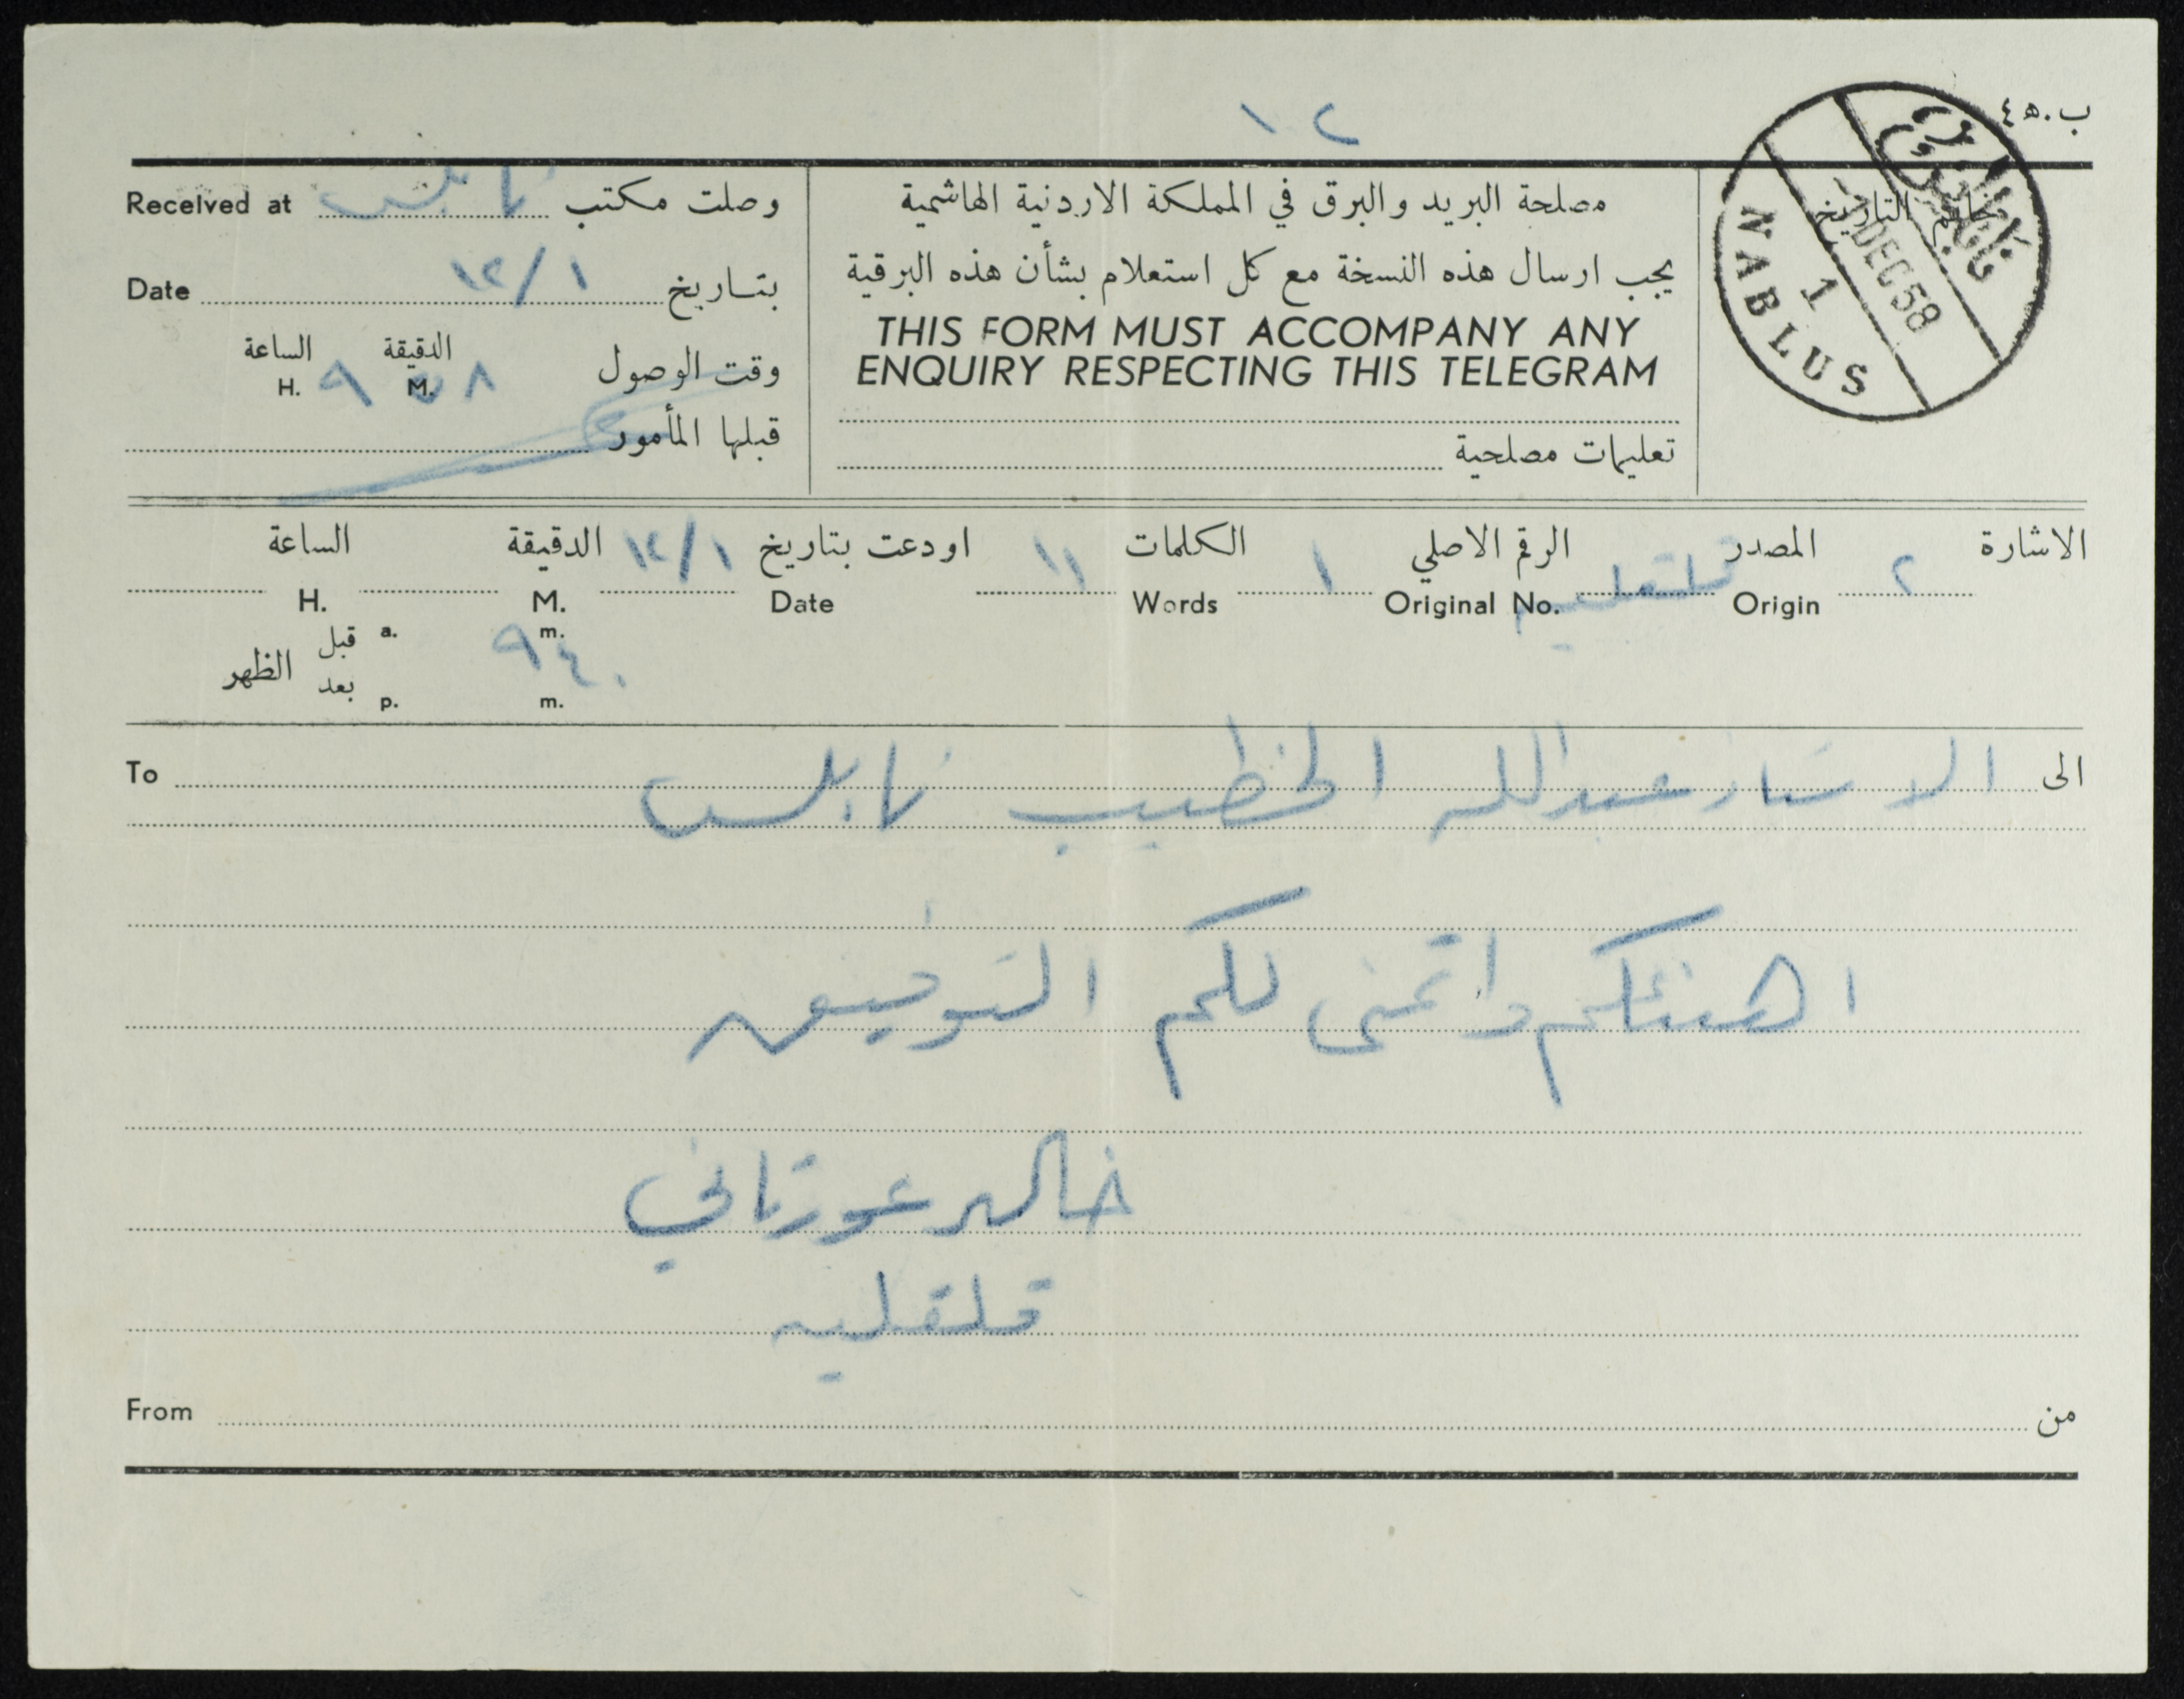 ب.ه ٤
١٢
Received at نابلس وصلت مكتب
Date ١٢/١ بتاريخ
الساعة الدقيقة
H. ٩ M. ٥٨ وقت الوصول
قبلها المأمور
مصلحة البريد والبرق في المملكة الاردنية الهاشمية
يجب ارسال هذه النسخة مع كل استعلام بشأن هذه البرقية
THIS FORM MUST ACCOMPANY ANY
ENQUIRY RESPECTING THIS TELEGRAM
تعليمات مصلحية
خاتم التاريخ
DEC 58
1
NABLUS
الاشارة ٢ المصدر قلقيليه الرقم الاصلي ١ الكلمات ١١ اودعت بتاريخ ١٢/١ الدقيقة الساعة
Origin Original No. Words Date M. H.
قبل a. m.
٩ ٤٠
الظهر
بعد p. m.
الى الاستاذ عبدالله الخطيب نابلس To
اهنئكم واتمنى لكم التوفيق
خالد عورتاني
قلقيليه
From من